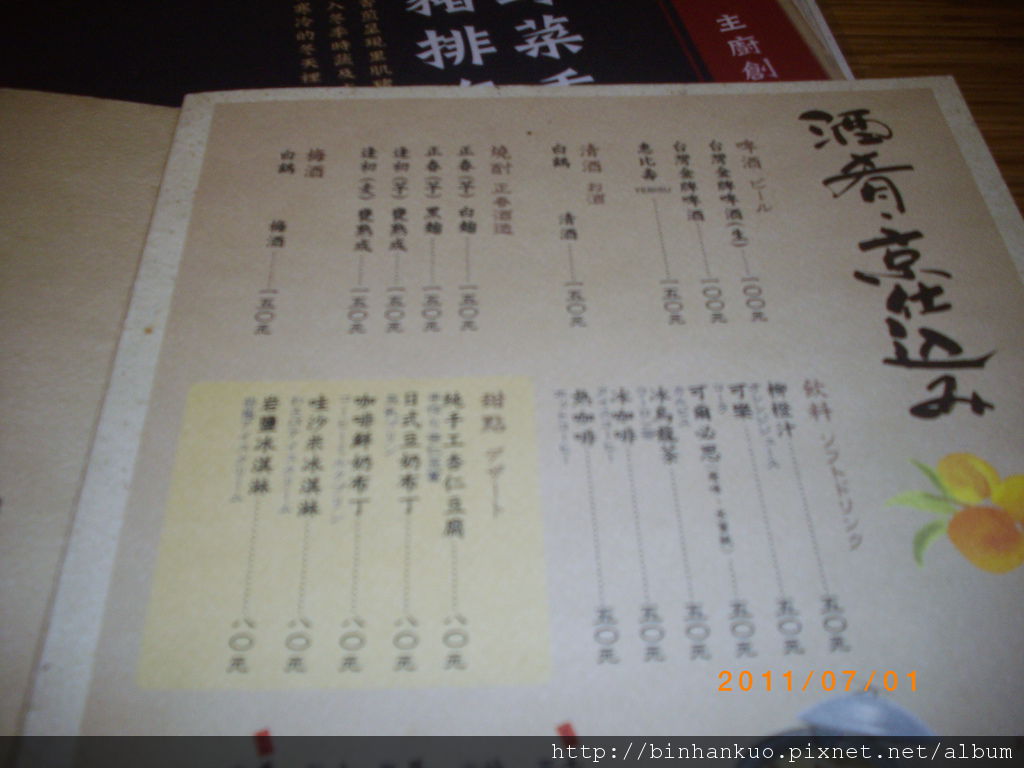 主廚創
菜
豬排
酒肴·烹仕込み
啤酒 ビール
台灣金牌啤酒(生)......一〇〇元
台灣金牌啤酒......一〇〇元
惠比壽 YEBISU......一五〇元
清酒 お酒
白鶴 清酒......一五〇元
燒酎 正春酒造
正春(芋)白麴......一五〇元
正春(芋)黑麴......一五〇元
逢初(芋)甕熟成......一五〇元
逢初(麦)甕熟成......一五〇元
梅酒
白鶴 梅酒......一五〇元
飲料 ソフトドリンク
柳橙汁......五〇元
オレンジジュース
可樂......五〇元
コーラ
可爾必思......五〇元
カルピス
冰烏龍茶......五〇元
冰咖啡......五〇元
アイスコーヒー
熱咖啡......五〇元
ホットコーヒー
甜點 デザート
純手工杏仁豆腐......八〇元
日式豆奶布丁......八〇元
咖啡鮮奶布丁......八〇元
哇沙米冰淇淋......八〇元
わさびアイスクリーム
岩鹽冰淇淋......八〇元
岩塩アイスクリーム
2011/07/01
http://binhankuo.pixnet.net/album